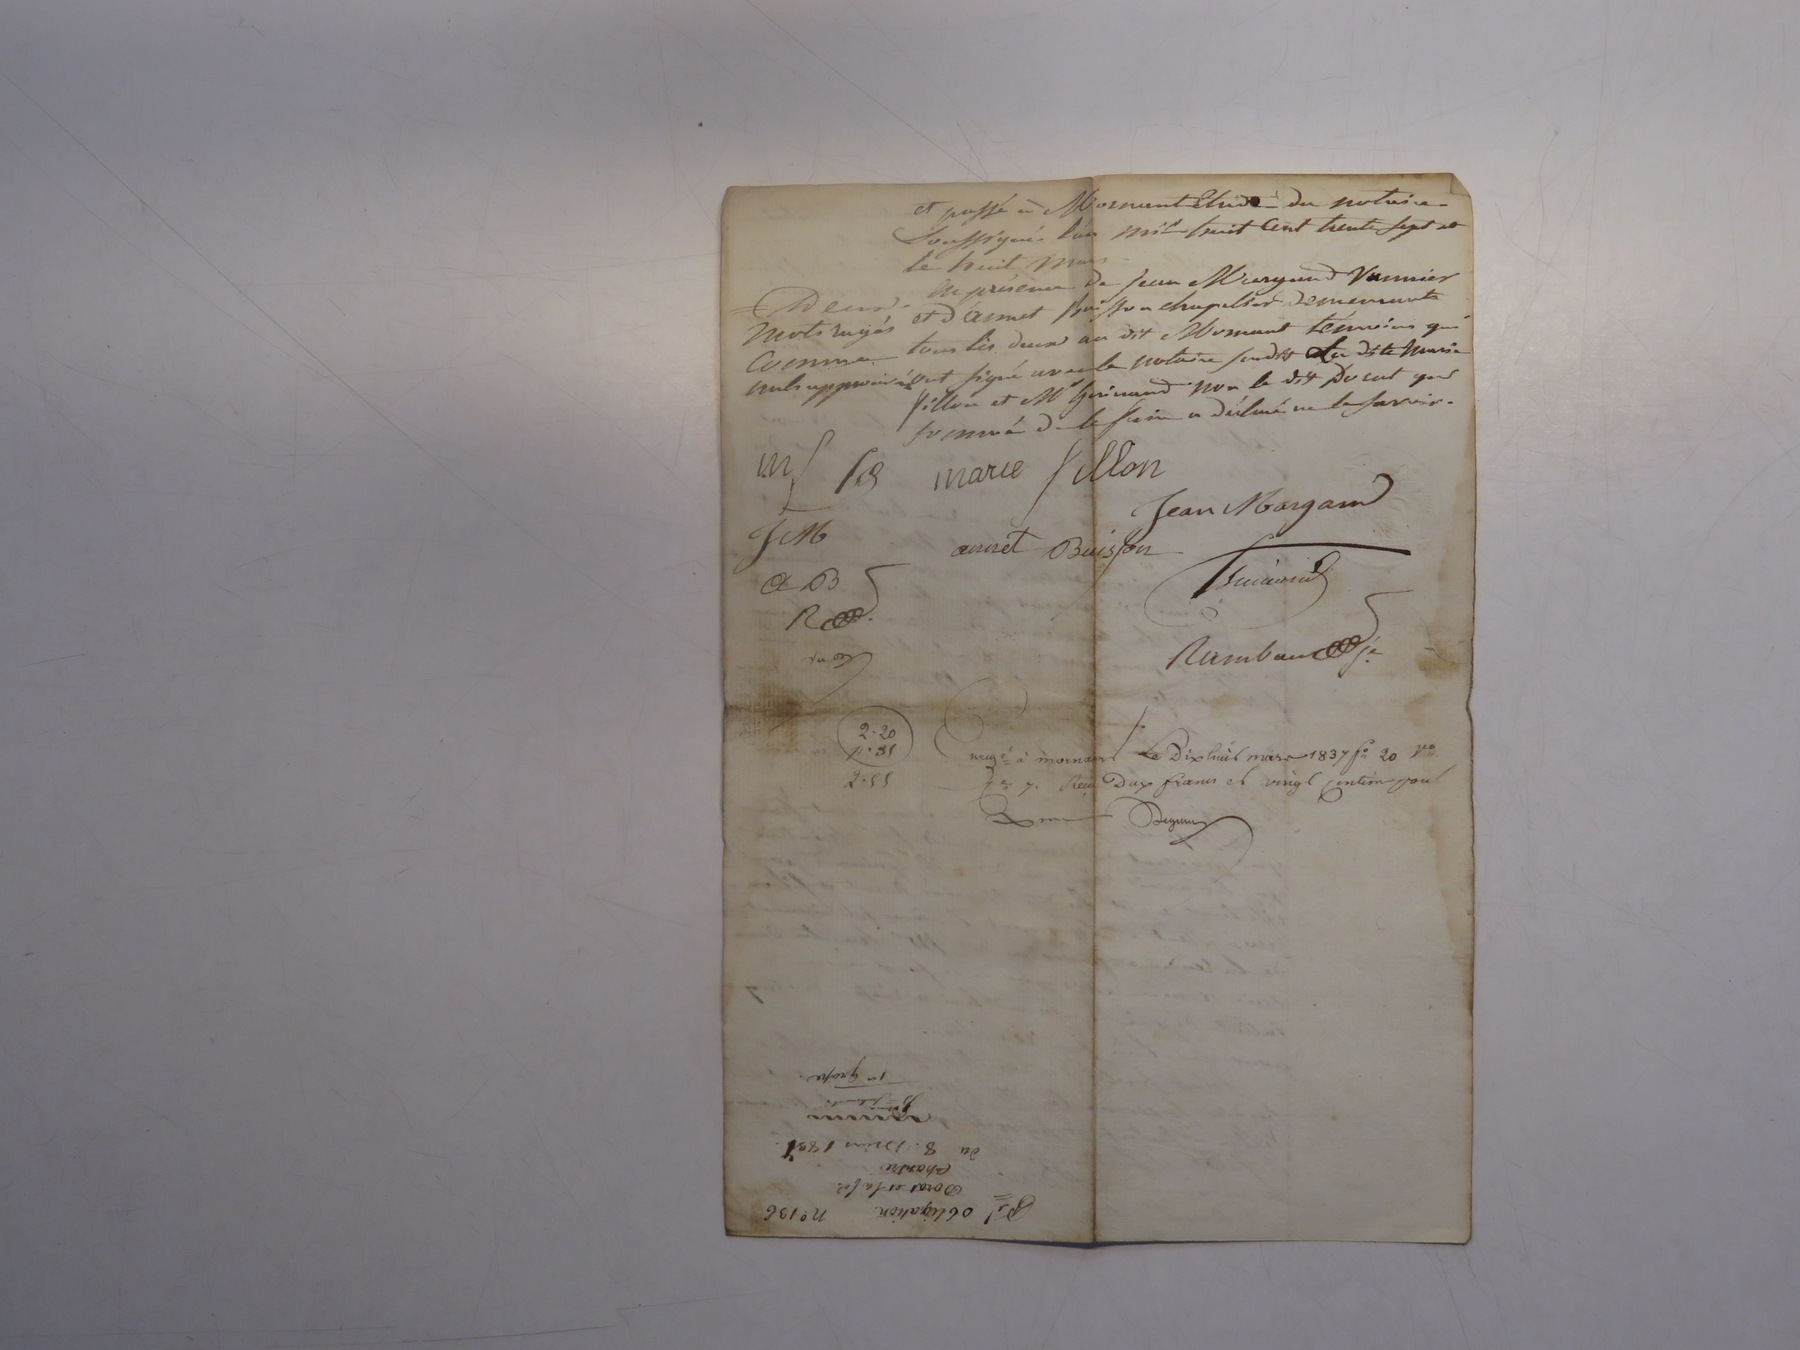 et passé à Mornant Etude du notaire
Soussigné l'an mil huit cent trente sept et
le huit Mars
En présence de Jean Margand Vannier
et d'annet Buisson chapelier demeurants
tous les deux au dit Mornant témoins qui
ont signé avec le notaire susdit La dite Marie
fillon et Mr non le dit Dorat que
sommé de le faire a déclaré ne le savoir.
Deux
Mots rayés
Comme
nuls approuvés
mf
marie fillon
Jean Margand
JM
annet Buisson
A B
R
Rambaud je
2.20
2.
enregé à mornant Le Dix huit mars 1837 fo 20 Vo
Ce 7. Reçu Deux francs et vingt centime pour
Nº 136
Obligation
Dorat et la fe
du 8. Mars 1837
1re Grosse.